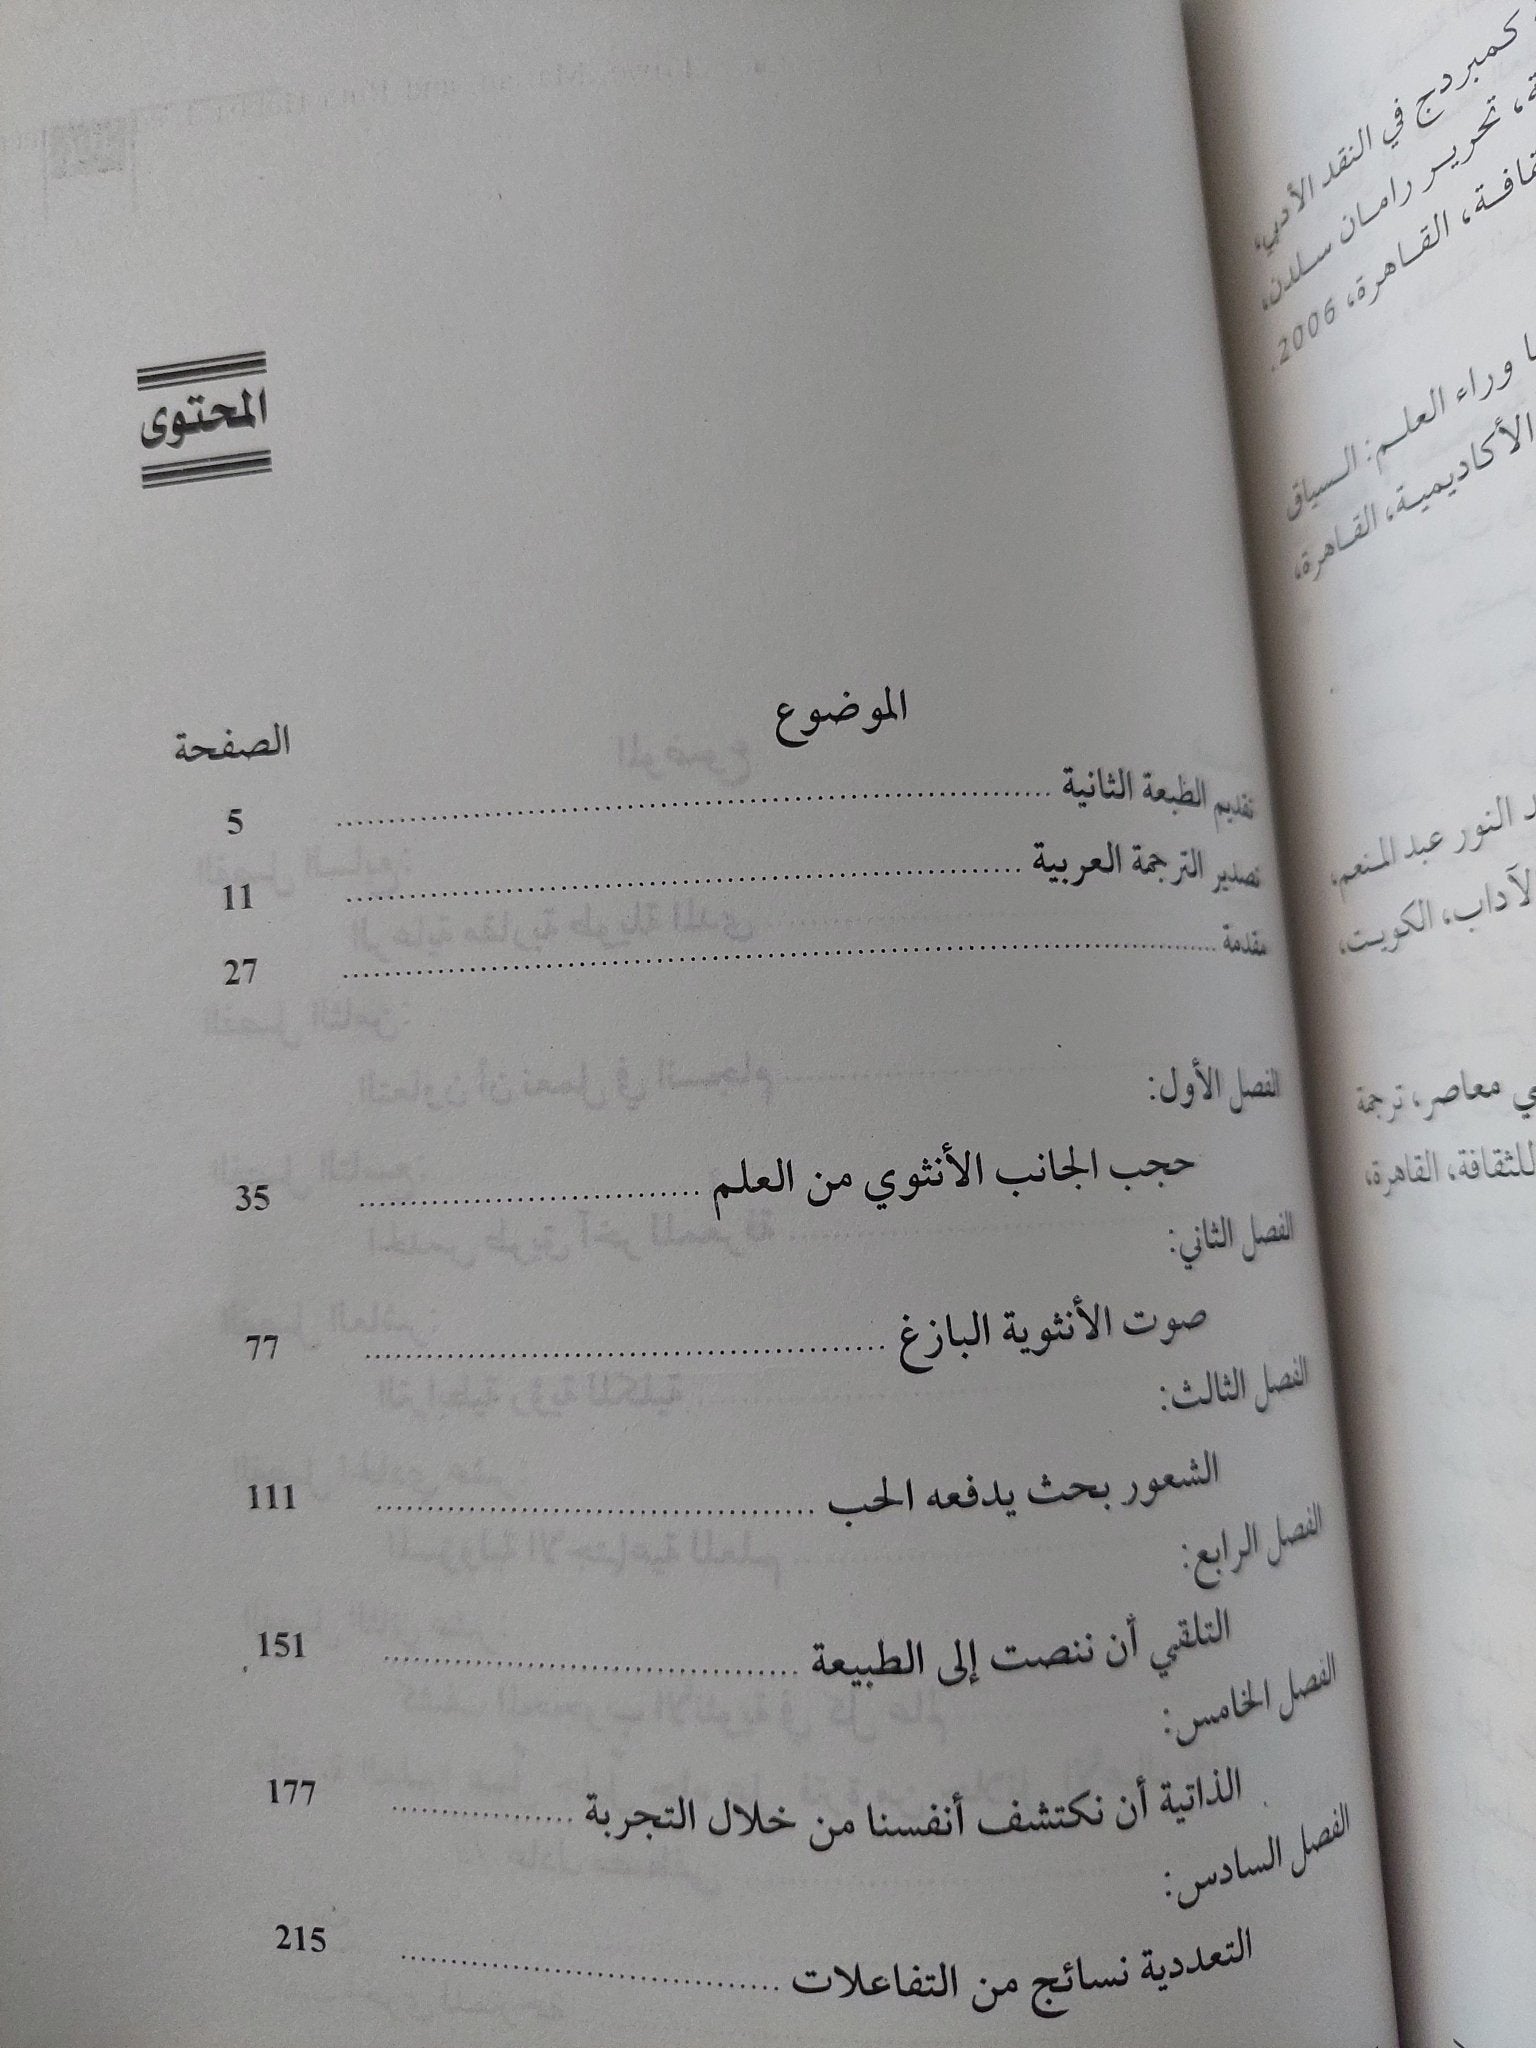 المحتوى
الموضوع
الصفحة
تقديم الطبعة الثانية ........ 5
تصدير الترجمة العربية ........ 11
مقدمة ........ 27
الفصل الأول:
حجب الجانب الأنثوي من العلم ........ 35
الفصل الثاني:
صوت الأنثوية البازغ ........ 77
الفصل الثالث:
الشعور بحث يدفعه الحب ........ 111
الفصل الرابع:
التلقي أن ننصت إلى الطبيعة ........ 151
الفصل الخامس:
الذاتية أن نكتشف أنفسنا من خلال التجربة ........ 177
الفصل السادس:
التعددية نسائج من التفاعلات ........ 215
كمبردج في النقد الأدبي،
تحرير رامان سلدن،
القاهرة، 2006.
وراء العلم: السياق
الأكاديمية، القاهرة،
النور عبد المنعم،
الآداب، الكويت،
معاصر، ترجمة
للثقافة، القاهرة،